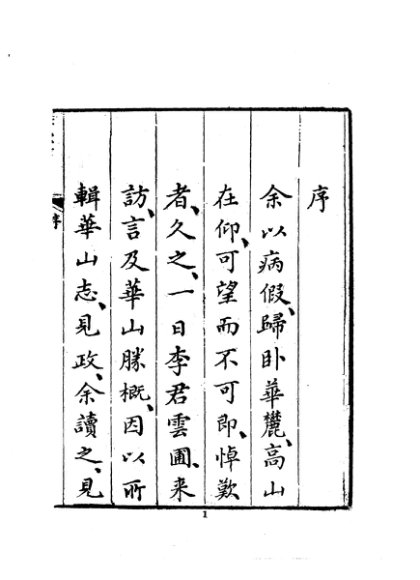 序
余以病假、歸卧華麓、高山
在仰、可望而不可即、悼歎
者、久之、一日李君雲圃、来
訪、言及華山勝概、因以所
輯華山志、見政、余讀之、見
序
1